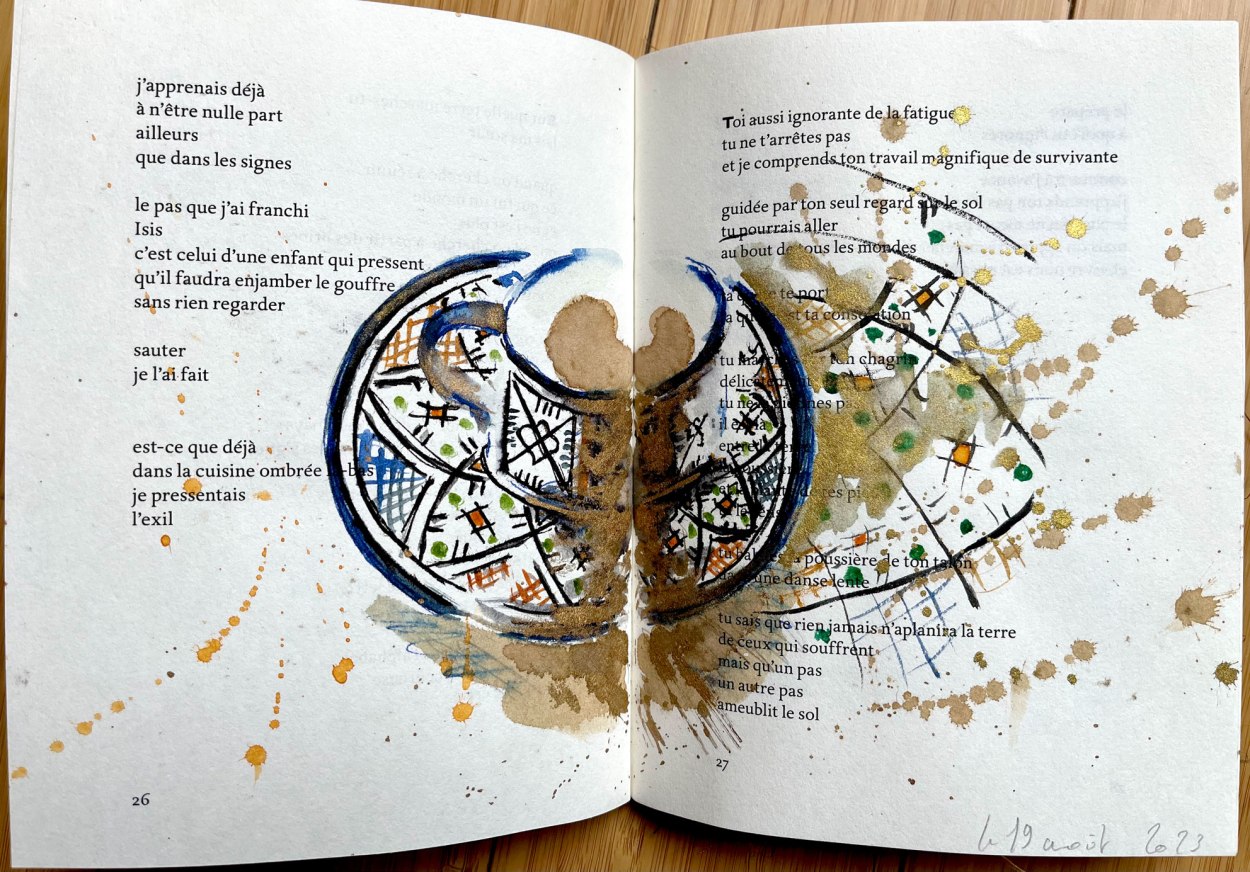 j'apprenais déjà
à n'être nulle part
ailleurs
que dans les signes
le pas que j'ai franchi
Isis
c'est celui d'une enfant qui pressent
qu'il faudra enjamber le gouffre
sans rien regarder
sauter
je l'ai fait
est-ce que déjà
dans la cuisine ombrée là-bas
je pressentais
l'exil
26
Toi aussi ignorante de la fatigue
tu ne t'arrêtes pas
et je comprends ton travail magnifique de survivante
guidée par ton seul regard sur le sol
tu pourrais aller
au bout de tous les mondes
te
ta consolation
tu chagrin
délicatement
tu
il
entre
tu poussière de ton talon
une danse lente
tu sais que rien jamais n'aplanira la terre
de ceux qui souffrent
mais qu'un pas
un autre pas
ameublit le sol
27
le 19 août 2023